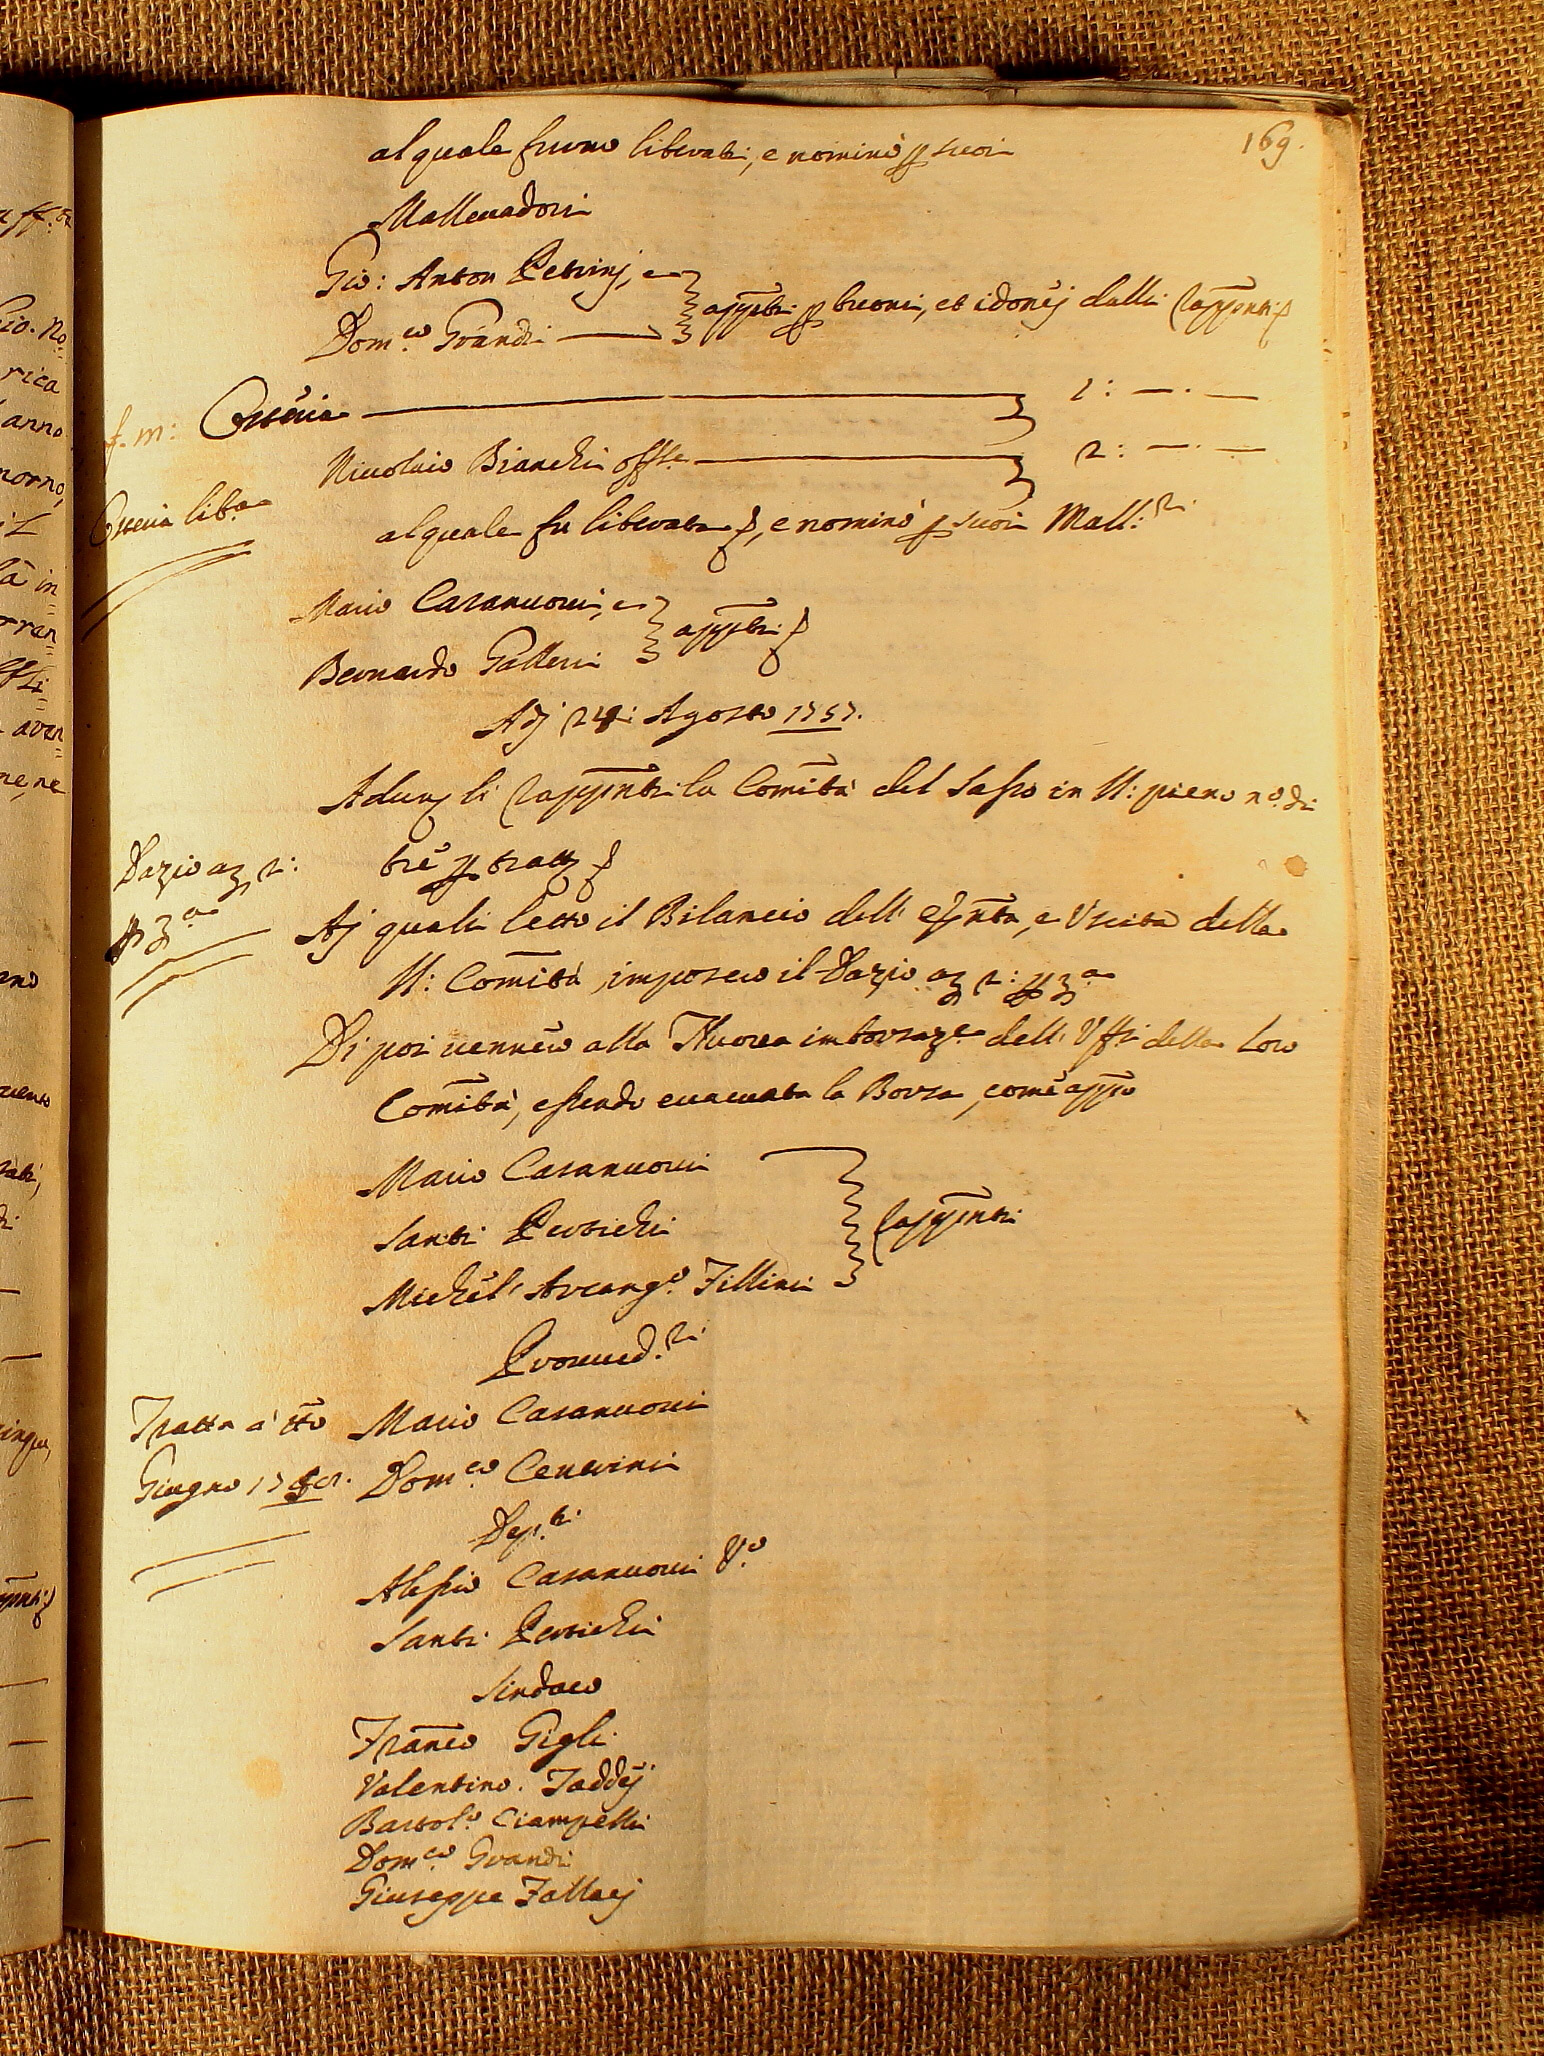 169.
al quale furno liberati, e nominò p suoi
Mallevadori
Gio: Anton Petrinj, e
Dom.co Grandi
appti p buoni, et idonej dalli Rappnti p
f. m: Osteria 1: — . —
Nicolaio Bianchi offe 2: — . —
Osteria liba
al quale fu liberata p, e nominò p suoi Mall:ri
Mario Casanuovi, e
Bernardo Galleri
appti p
Adj 24: Agosto 1757.
Adunj li Rappnti la Comità del Sasso in N: pieno n.o di
Dazio a 2:
tre p tratt p
p 3.a
Aj quali letto il Bilancio dell' Entta, e Uscita della
N: Comità, imposero il Dazio a 2: p 3.a
Di poi vennero alla Nuova imborsaze delli Uffi della Loro
Comità, essendo evacuata la Borsa, come appo
Mario Casanuovi
Santi Pertichi
Michel' Arcang.o Fillini
Rappnti
Provved.ri
Tratta a tto
Mario Casanuovi
Giugno
Dom.co Cenerini
Dep.ti
Alessio Casanuovi V.o
Santi Pertichi
Sindaco
Franco Gigli
Valentino. Taddej
Bartol.o Ciampelli
Dom.co Grandi
Giuseppe Fallaj